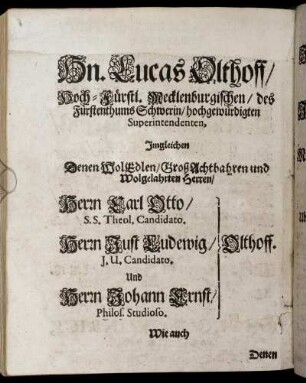 Hn. Lucas Olthoff/
Hoch-Fürstl. Mecklenburgischen/ des
Fürstenthums Schwerin/ hochgewürdigten
Superintendenten,
Imgleichen
Denen WolEdlen/ GroßAchtbahren und
Wolgelahrten Herren/
Herrn Carl Otto/
S.S. Theol. Candidato.
Herrn Just Ludewig/ Olthoff.
J. U. Candidato.
Und
Herrn Johann Ernst/
Philos. Studioso.
Wie auch
Denen